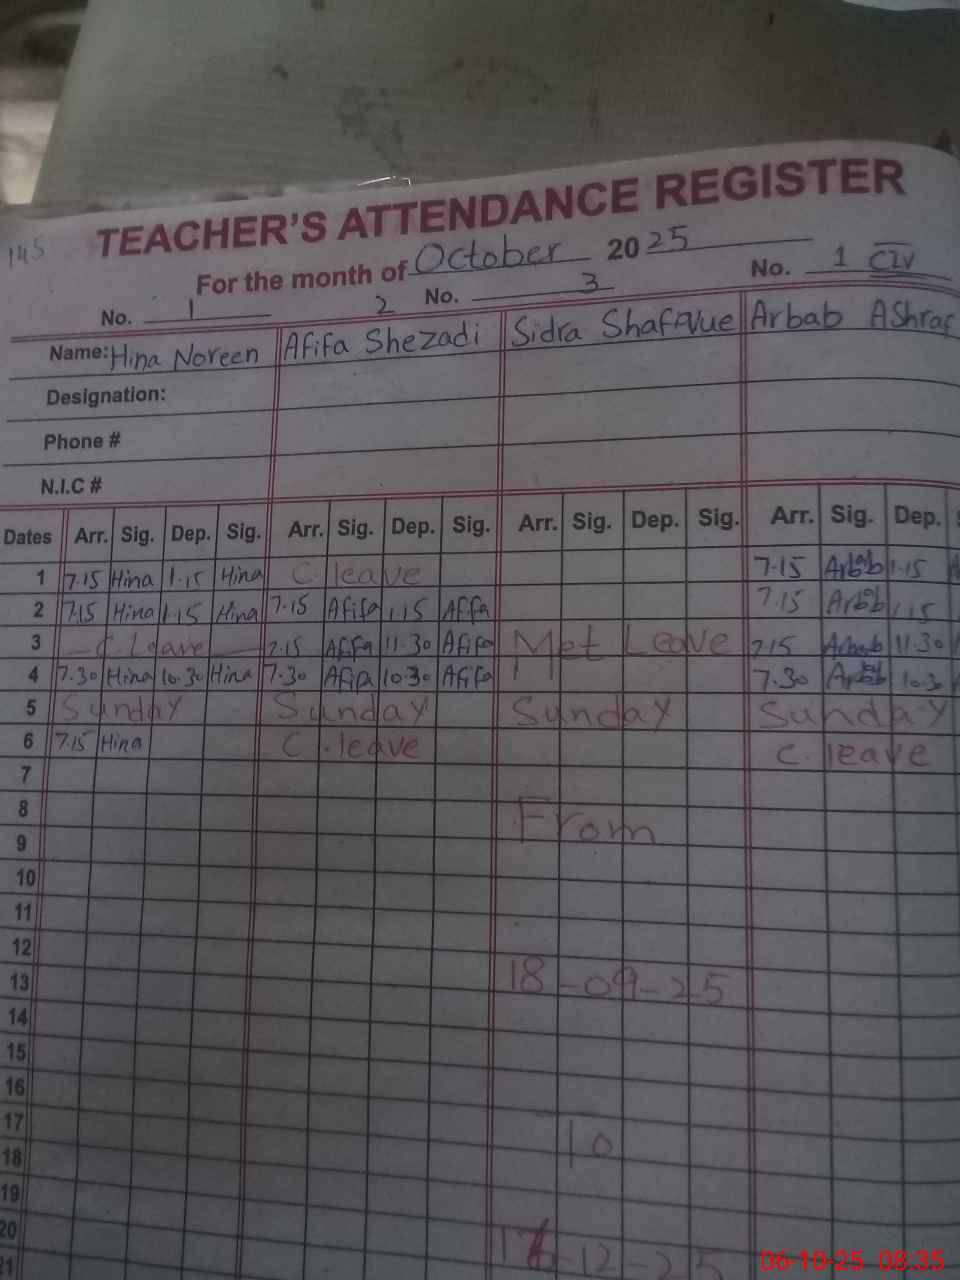 145
TEACHER'S ATTENDANCE REGISTER
For the month of October 2025
No. 1 2 No. 3 No. 1 CIV
Name: Hina Noreen Afifa Shezadi Sidra Shafique Arbab AShraf
Designation:
Phone #
N.I.C #
Dates Arr. Sig. Dep. Sig. Arr. Sig. Dep. Sig. Arr. Sig. Dep. Sig. Arr. Sig. Dep.
1 7.15 Hina 1.15 Hina C.leave 7.15 Arbab 1.15
2 7.15 Hina 1.15 Hina 7.15 Afifa 1.15 Afifa 7.15 Arbab 1.15
3 C Leave 7.15 Afifa 11.30 Afifa Met Leave 7.15 Arbab 11.30
4 7.30 Hina 10.30 Hina 7.30 Afifa 10.30 Afifa 7.30 Arbab 10.3
5 Sunday Sunday Sunday Sunday
6 7.15 Hina C.leave C.leave
7
8 From
9
10
11
12
13 18-09-25
14
15
16
17
18 To
19
20
21 -12-25
06-10-25 08:35